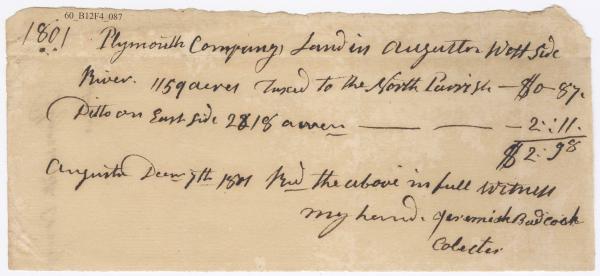 60_B12F4_087
1801 Plymouth Company, Land in Augusta West Side
River. 1159 acres Taxed to the North Parrish — $0-87.
Ditto on East Side 2818 acres — — — 2:11.
$2:98
Augusta Decm 7th 1801 Recd the above in full witness
my hand. Jeremiah Badcock
Colector